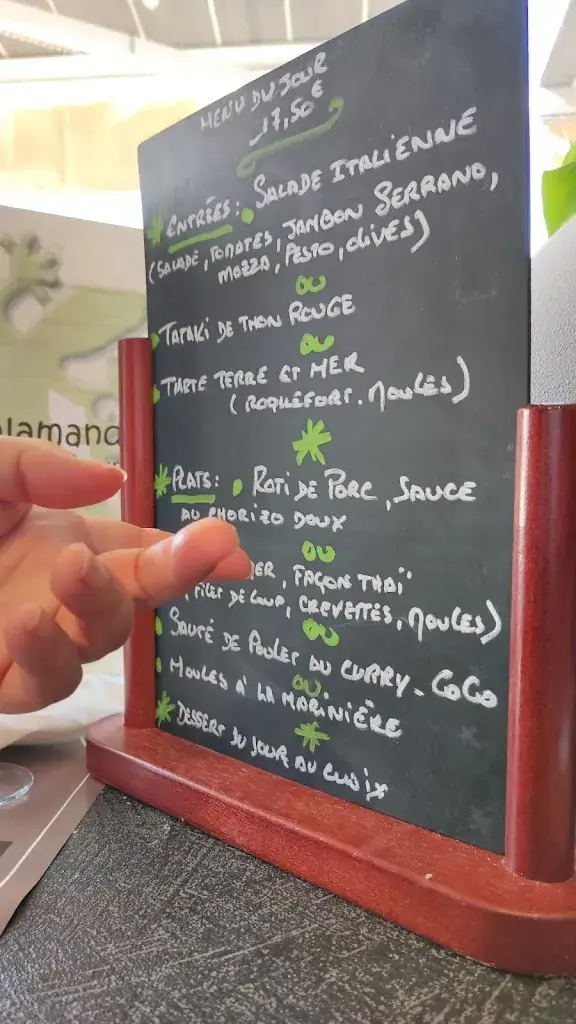 MENU DU JOUR
17,50€
* ENTRÉES : • SALADE ITALIENNE
(SALADE, TOMATES, JAMBON SERRANO,
MOZZA, PESTO, OLIVES)
OU
• TATAKI DE THON ROUGE
OU
• TARTE TERRE ET MER
(ROQUEFORT. MOULES)
*
* PLATS : • ROTI DE PORC, SAUCE
AU CHORIZO DOUX
OU
FAÇON THAÏ
FILET DE LOUP, CREVETTES, MOULES)
OU
• SAUTÉ DE POULET AU CURRY-COCO
OU
• MOULES À LA MARINIÈRE
*
* DESSERT DU JOUR AU CHOIX
alamand